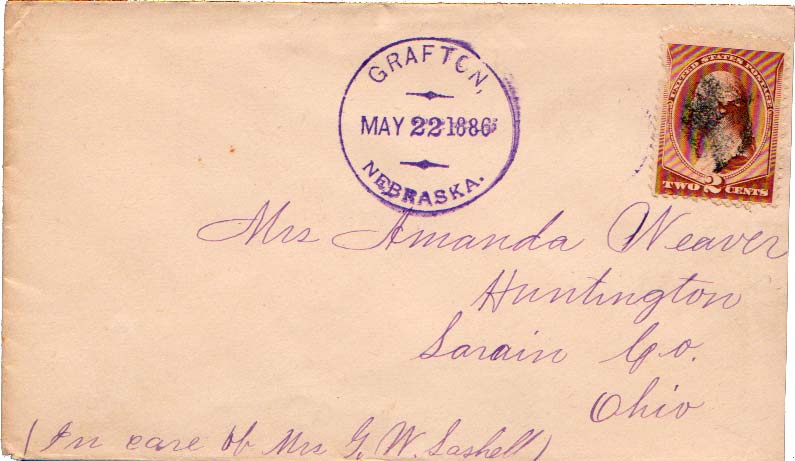 GRAFTON,
MAY 22 1886
NEBRASKA.
UNITED STATES POSTAGE
TWO 2 CENTS
Mrs Amanda Weaver
Huntington
Lorain Co.
Ohio
(In care of Mrs G. W. Sashell)